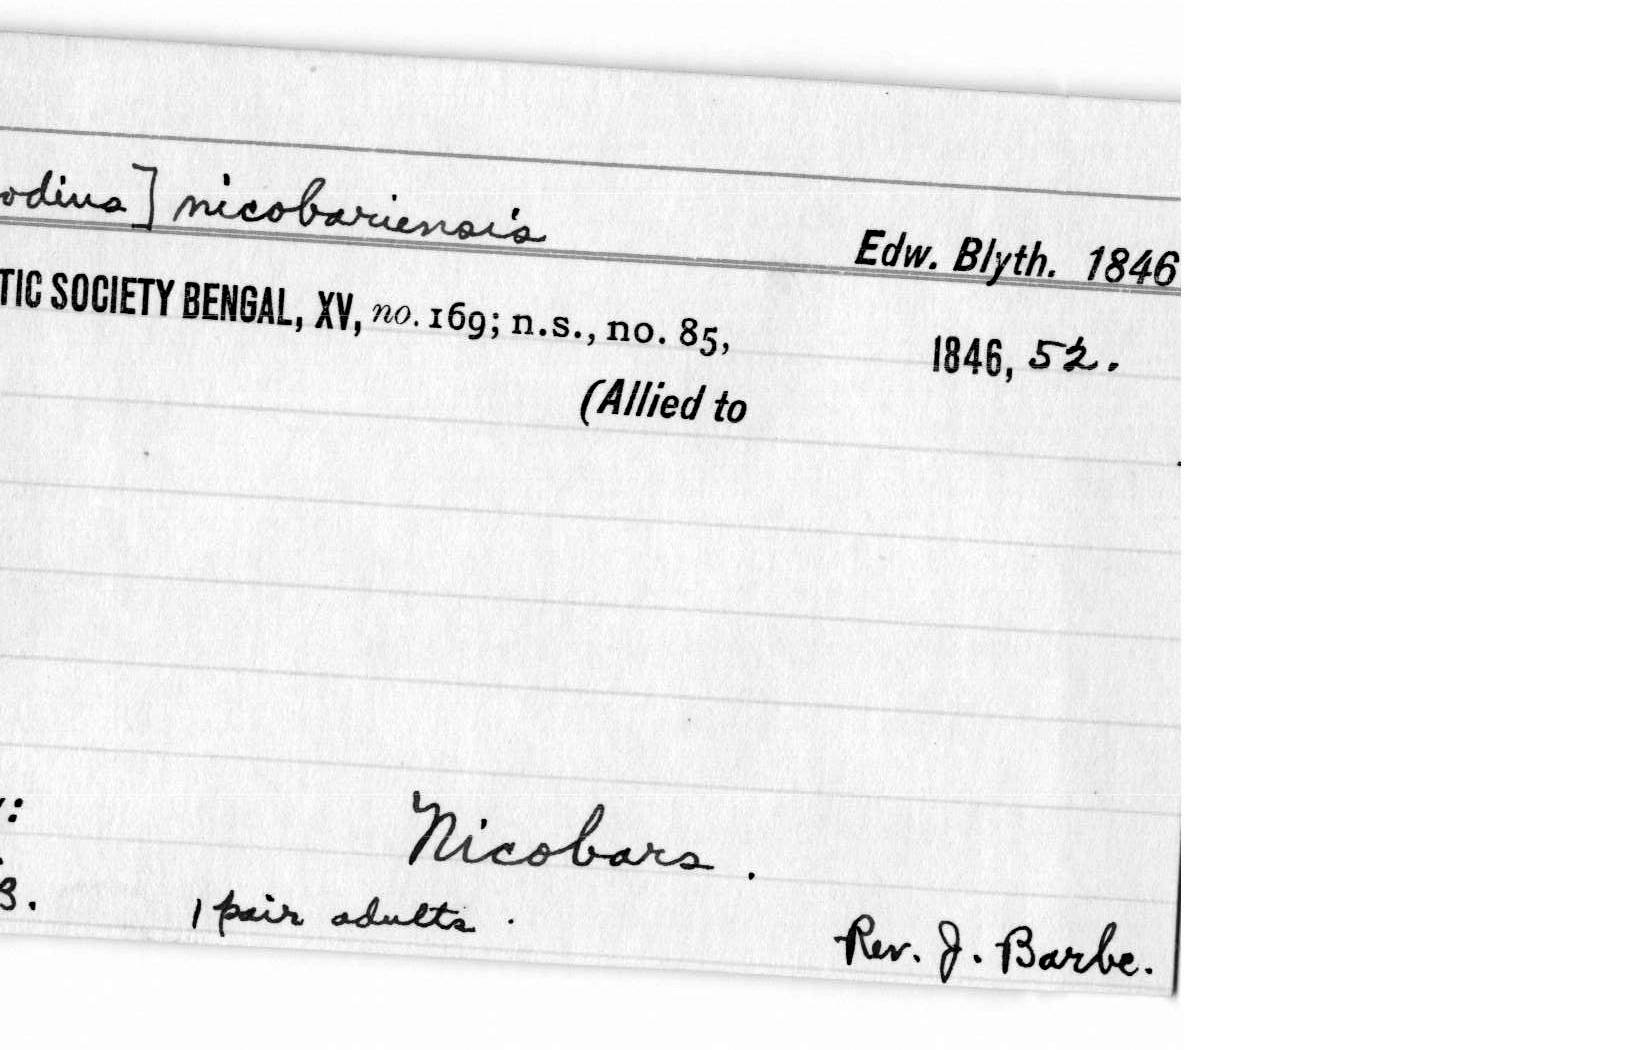 odius] nicobariensis
Edw. Blyth. 1846
TIC SOCIETY BENGAL, XV, no. 169; n.s., no. 85, 1846, 52.
(Allied to
:
Nicobars.
3. 1 pair adults.
Rev. J. Barbe.